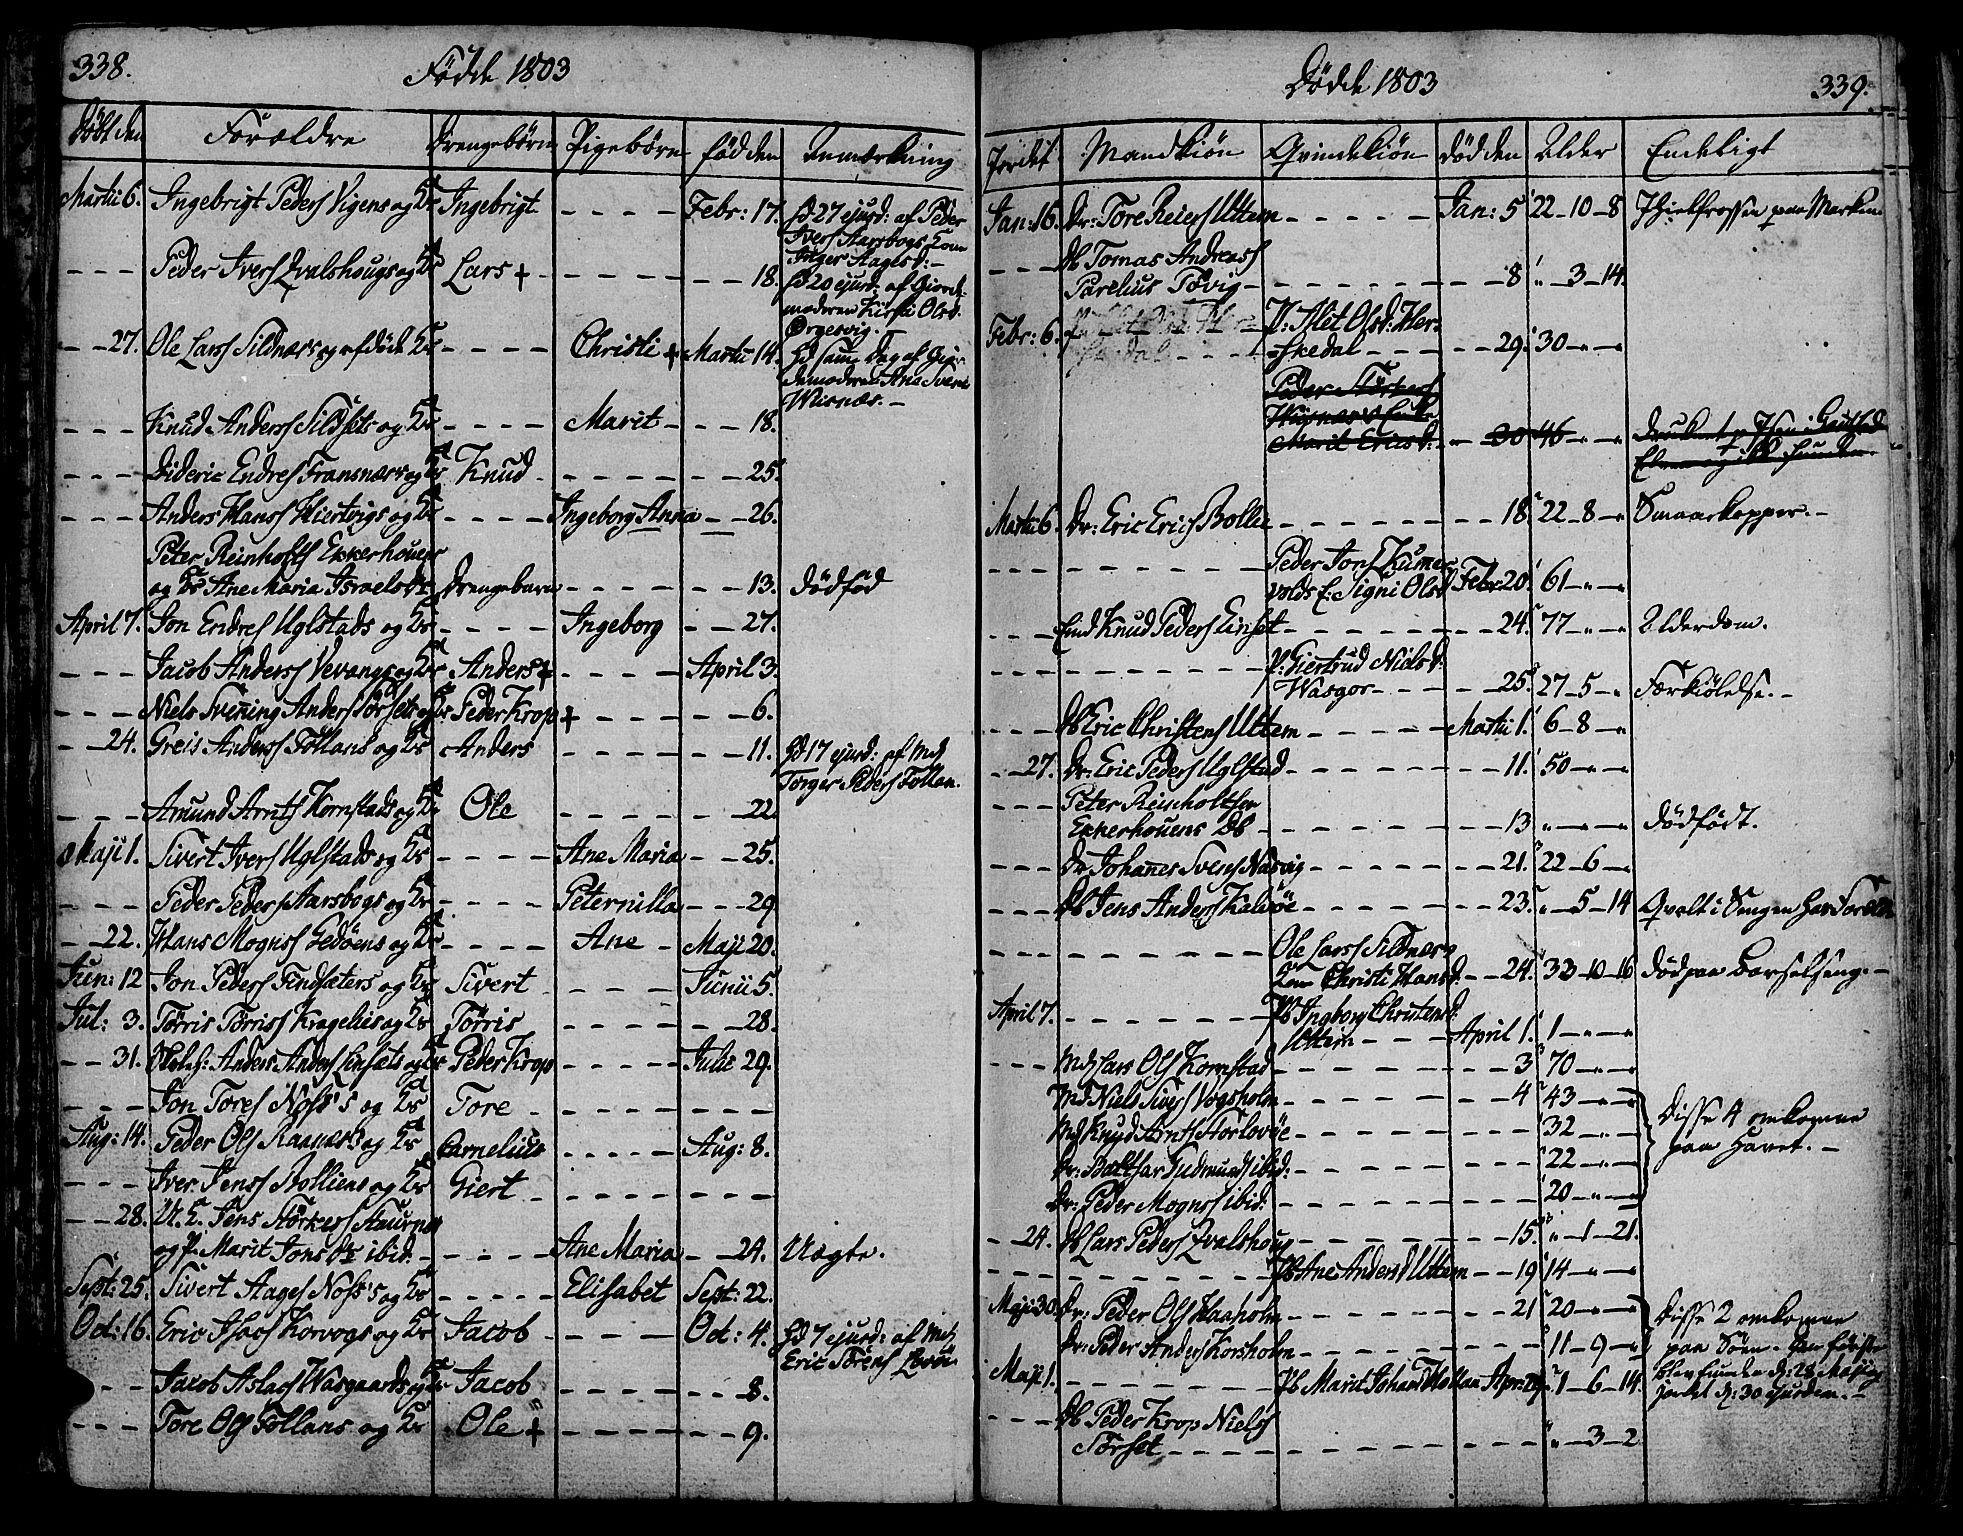 338.
Fødde 1803
Døbt den Forældre Drengebørn Pigebørn fød den Anmærkning
Martii 6. Ingebrigt Peders Vigens og Hr Ingebrigt - - - - Febr: 17. Hd 27 ejusd: af Peder
Ivers Aarsbogs Kone
Inger Aagesd: -
- - - Peder Ivers Qvalshougs og Hr Lars + - - - - - 18. Hd 20 ejusd: af Giord-
moderen Kirsti Olsd:
Ørgesvig. -
- - 27. Ole Lars Sildnæs og afdød Hr - - - - Christi + Martii 14. Hd samme Dag af Gior-
demoderen Ane Svens
Misnæs. -
- - - Knud Anders Sildsets og Hr - - - - Marit - - - 18.
- - - Dideric Endres Fransnæs og Hr Knud - - - - - - 25.
- - - Anders Hans Hiertvigs og Hr - - - - Ingeborg Anna - - 26.
Peter Reinholts Ekkerhouens
og Hr Ane Maria Israelsdr Drengebarn - - - - - - 13. Dødfød
April 7. Jon Endres Uglstads og Hr - - - - Ingeborg - - 27.
- - - Jacob Anders Vevangs og Hr Anders + - - - - April 3.
- - - Niels Svening Anders Sørsets og Hr Peder Krop + - - - - - 6.
- - 24. Greis Anders Follans og Hr Anders - - - - - - 11. Hd 17 ejusd: af Md
Torger Peders Follan.
- - - Amund Arnts Kornstads og Hr Ole - - - - - - 22.
Maji 1. Sivert Ivers Uglstads og Hr - - - - Ane Maria - - 25.
- - - Peder Peders Aarsbogs og Hr - - - - Peternilla - - - 29.
- - 22. Hans Mogns Gedøens og Hr - - - - Ane - Maji 20.
Jun: 12 Jon Peders Findsæters og Hr Sivert - - - - Junii 5.
Jul: 3. Tørris Tørriss Kragelies og Hr Tørris - - - - - - 28.
- - 31. Anders Anders Linsets og Hr Peder Krop - - - - Julii 29.
- - - Jon Tores Noss's og Hr Tore - - - - - - - -
Aug: 14. Peder Ols Raanæs og Hr Cornelius - - - - Aug: 8.
- - - Iver Jens Bolliens og Hr Giert - - - - - - - -
- - 28. U. K. Jens Størkers Aurnes
og P. Marit Jons Dr ibid: - - - - - Ane Maria - - 24. Uægte.
Sept: 25. Sivert Aages Noss's og Hr - - - - - Elisabet Sept: 22.
Oct: 16. Eric Isacs Korvogs og Hr Jacob - - - - Oct: 4. Hd 7 ejusd: af Md
Eric Sørens
- - Jacob Aslacs Wasgaards og Hr Jacob - - - - - - 8.
- - - Tore Ols Follans og Hr Ole + - - - - - - 9.
Dødde 1803
339.
Jordet Mandkiøn Qvindekiøn død den Alder Endeligt
Jan: 16. Dr: Tore Reiers Uttem - - - - - Jan: 5 22 - 10 - 8 Ihielfrossen paa Marken
- - - Db Tomas Andreas
Parelius Tøvig - - - - - - - 8 " - 3 - 14.
Febr: 6. P: Alet Olsd: Her-
skedal - - - - - 29. 30 - " - "
Peder Størkers
Marit Ericsd: - - 30 46 - " - "
Martii 6. Dr: Eric Erics Bollie - - - - - - 18. 22 - 8 - " Smaaekopper. -
- - - - - - - - Peder Jons Kume-
volds E: Signi Olsd Febr 20. 61 - " - "
- - - Emd Knud Peders Linset - - - - - - 24. 77 - " - " Alderdom.
- - - - - - - - P: Giertrud Nielsd:
Wasgor - - - - - 25. 27 - 5 - " Forkiølelse. -
- - - Db Eric Christens Uttem - - - - Martii 1. 6 - 8 - "
- - 27. Dr: Eric Peders Uglstad - - - - - - 11. 50 - " - "
- - - Peter Reinholtsen
Ekkerhouens Db - - - - - - 13 " - " - " Dødfødt.
- - - Dr Johanes Svens Nasvig - - - - - - 21. 22 - 6 -
- - - Db Jens Anders Kalvøe - - - - - - 23. " - 5 - 14 Qvalt i Sengen hos Foræld:
- - - - - - - - Ole Lars Sildnæs
Kone Christi Hansd: - - 24. 33 - 10 - 16 Død paa Barselseng. -
April 7. - - - - - - Pb Ingborg Christensd:
Uttem - - - April 1. 1 - " - "
- - - Md Lars Ols Kornstad - - - - - - 3 70 - " - "
Md Niels Sivers Vogsholm - - - - - - 4 43 - " - " Disse 4 omkomne
Md Knud Arnts Storlovøe - - - - - - 32 - " - " paa Havet. -
Dr: Baltsar Gudmunds ibid: - - - - - - 22 - " - "
Dr: Peder Mogns ibid: - - - - - - 20 - " - "
- 24. Db Lars Peders Qvalshoug - - - - - - 15. " - 1 - 21.
- - - - - - - - Pb Ane Andersd Uttem - - 19 14 - " - "
Maji 30. Dr: Peder Ols Haaholm - - - - - - 21 20 - " - " Disse 2 omkomne
Dr: Peder Anders Korsholm - - - - - - 11 - 9 - " paa Søen - den første
Maji 1. - - - - - - Pb Marit Johans Follan April 1 - 6 - 14. blev funden d: 28 Maji og
jordet d: 30 ejusdem. -
- - - Db Peder Krop Niels
Sørset - - - - - - - - " - 3 - 2